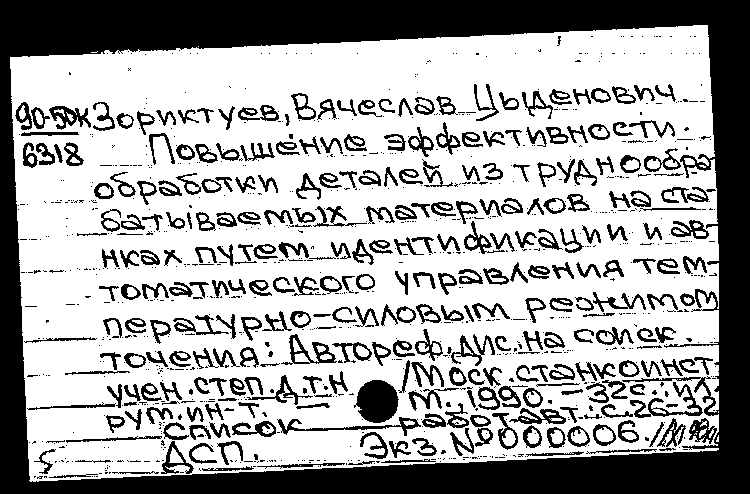 90-5ДК Зориктуев, Вячеслав Цыденович.
6318 Повышение эффективности
обработки деталей из труднообра-
батываемых материалов на ста-
нках путем идентификации и ав-
томатического управления тем-
пературно-силовым режимом
точения: Автореф. дис. на соиск.
учен. степ. д.т.н /Моск. станкоинст-
рум. ин-т. — М., 1990. — 32с.: ил.
список работ авт.: с. 26-32
ДСП. Экз. №000006.